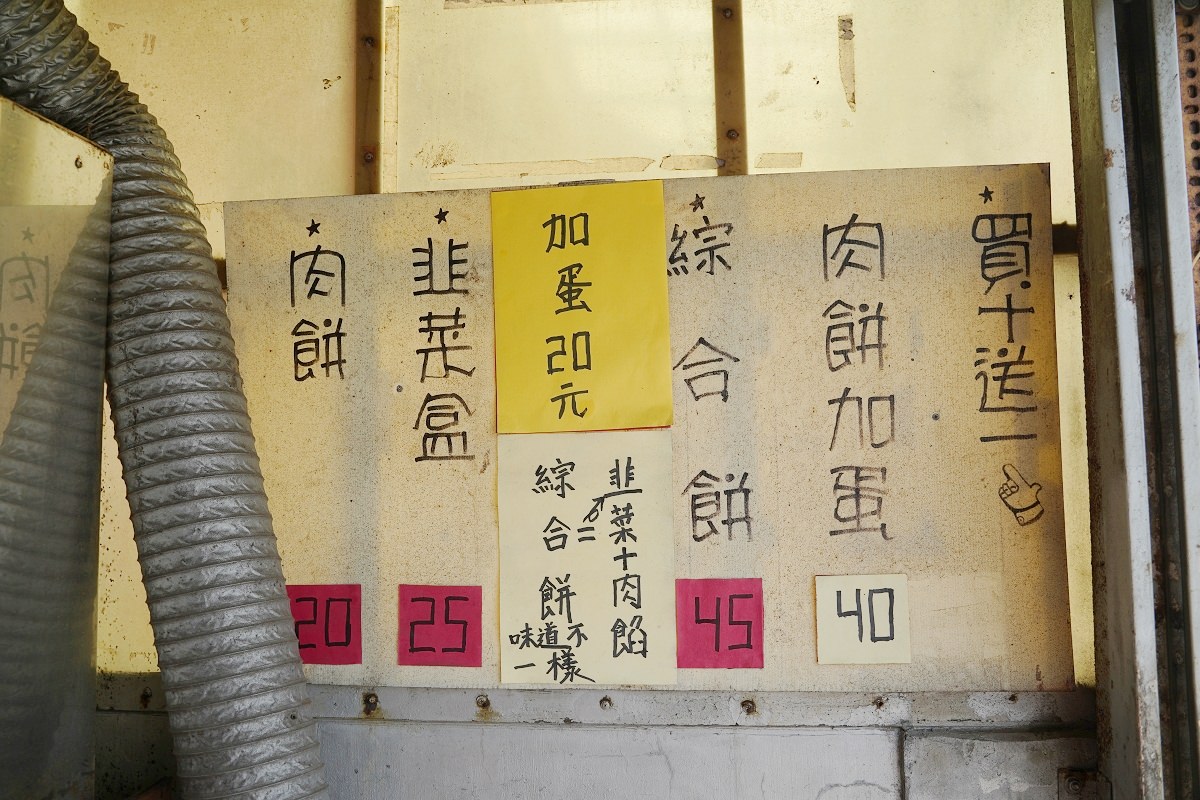 ★買十送一
肉餅加蛋
40
★綜合餅
45
加蛋20元
韭菜十肉餡
=綜合餅
味道不一樣
★韭菜盒
25
★肉餅
20